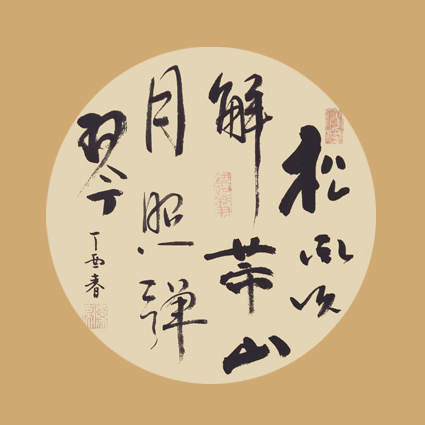 松风吹
解带山
月照弹
琴
丁酉春